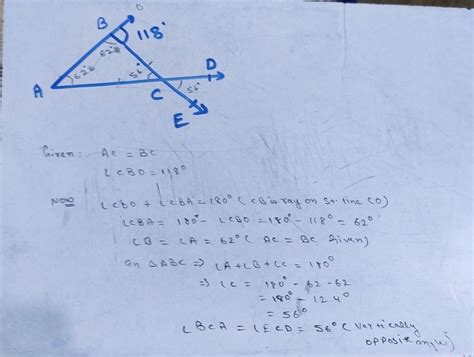 O
B
118°
62°
62°
56°
D
A
C
56°
E
Given: AC = BC
∠CBO = 118°
Now ∠CBO + ∠CBA = 180° (CB is ray on st. line
∠CBA = 180° - ∠CBO = 180° - 118° = 62°
∠B = ∠A = 62° (AC = BC Given)
In ΔABC ⇒ ∠A+∠B+∠C = 180°
⇒ ∠C = 180° - 62 - 62
= 180° - 124°
= 56°
∠BCA = ∠ECD = 56° (Vertically
opposite angle)